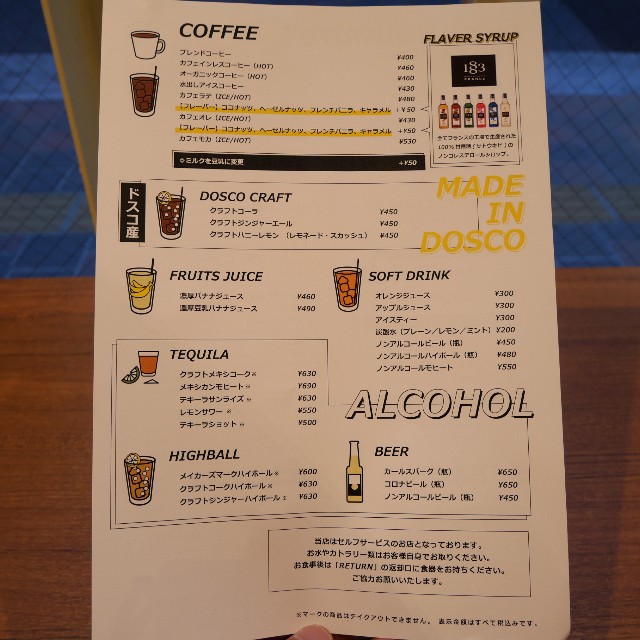 COFFEE
ブレンドコーヒー ¥400
カフェインレスコーヒー(HOT) ¥460
オーガニックコーヒー(HOT) ¥400
水出しアイスコーヒー ¥430
カフェラテ(ICE/HOT) ¥480
【フレーバー】ココナッツ、ヘーゼルナッツ、フレンチバニラ、キャラメル +¥50
カフェオレ(ICE/HOT) ¥430
【フレーバー】ココナッツ、ヘーゼルナッツ、フレンチバニラ、キャラメル +¥50
カフェモカ(ICE/HOT) ¥530
※ミルクを豆乳に変更 +¥50
FLAVER SYRUP
1883
FRANCE
全てフランスの工場で生産された
100%甘蔗糖(サトウキビ)の
ノンコレステロールシロップ。
ドスコ産
DOSCO CRAFT
クラフトコーラ ¥450
クラフトジンジャーエール ¥450
クラフトハニーレモン (レモネード・スカッシュ) ¥450
MADE
IN
DOSCO
FRUITS JUICE
濃厚バナナジュース ¥460
濃厚豆乳バナナジュース ¥490
SOFT DRINK
オレンジジュース ¥300
アップルジュース ¥300
アイスティー ¥300
炭酸水(プレーン/レモン/ミント) ¥200
ノンアルコールビール(瓶) ¥450
ノンアルコールハイボール(瓶) ¥480
ノンアルコールモヒート ¥550
TEQUILA
クラフトメキシコーク※ ¥630
メキシカンモヒート※ ¥690
テキーラサンライズ※ ¥630
レモンサワー※ ¥550
テキーラショット※ ¥500
ALCOHOL
HIGHBALL
メイカーズマークハイボール※ ¥600
クラフトコークハイボール※ ¥630
クラフトジンジャーハイボール※ ¥630
BEER
カールスバーグ(瓶) ¥650
コロナビール(瓶) ¥650
ノンアルコールビール(瓶) ¥450
当店はセルフサービスのお店となっております。
お水やカトラリー類はお客様自身でお取りください。
お食事後は「RETURN」の返却口に食器をお持ちください。
ご協力お願いいたします。
※マークの商品はテイクアウトできません。 表示金額はすべて税込みです。